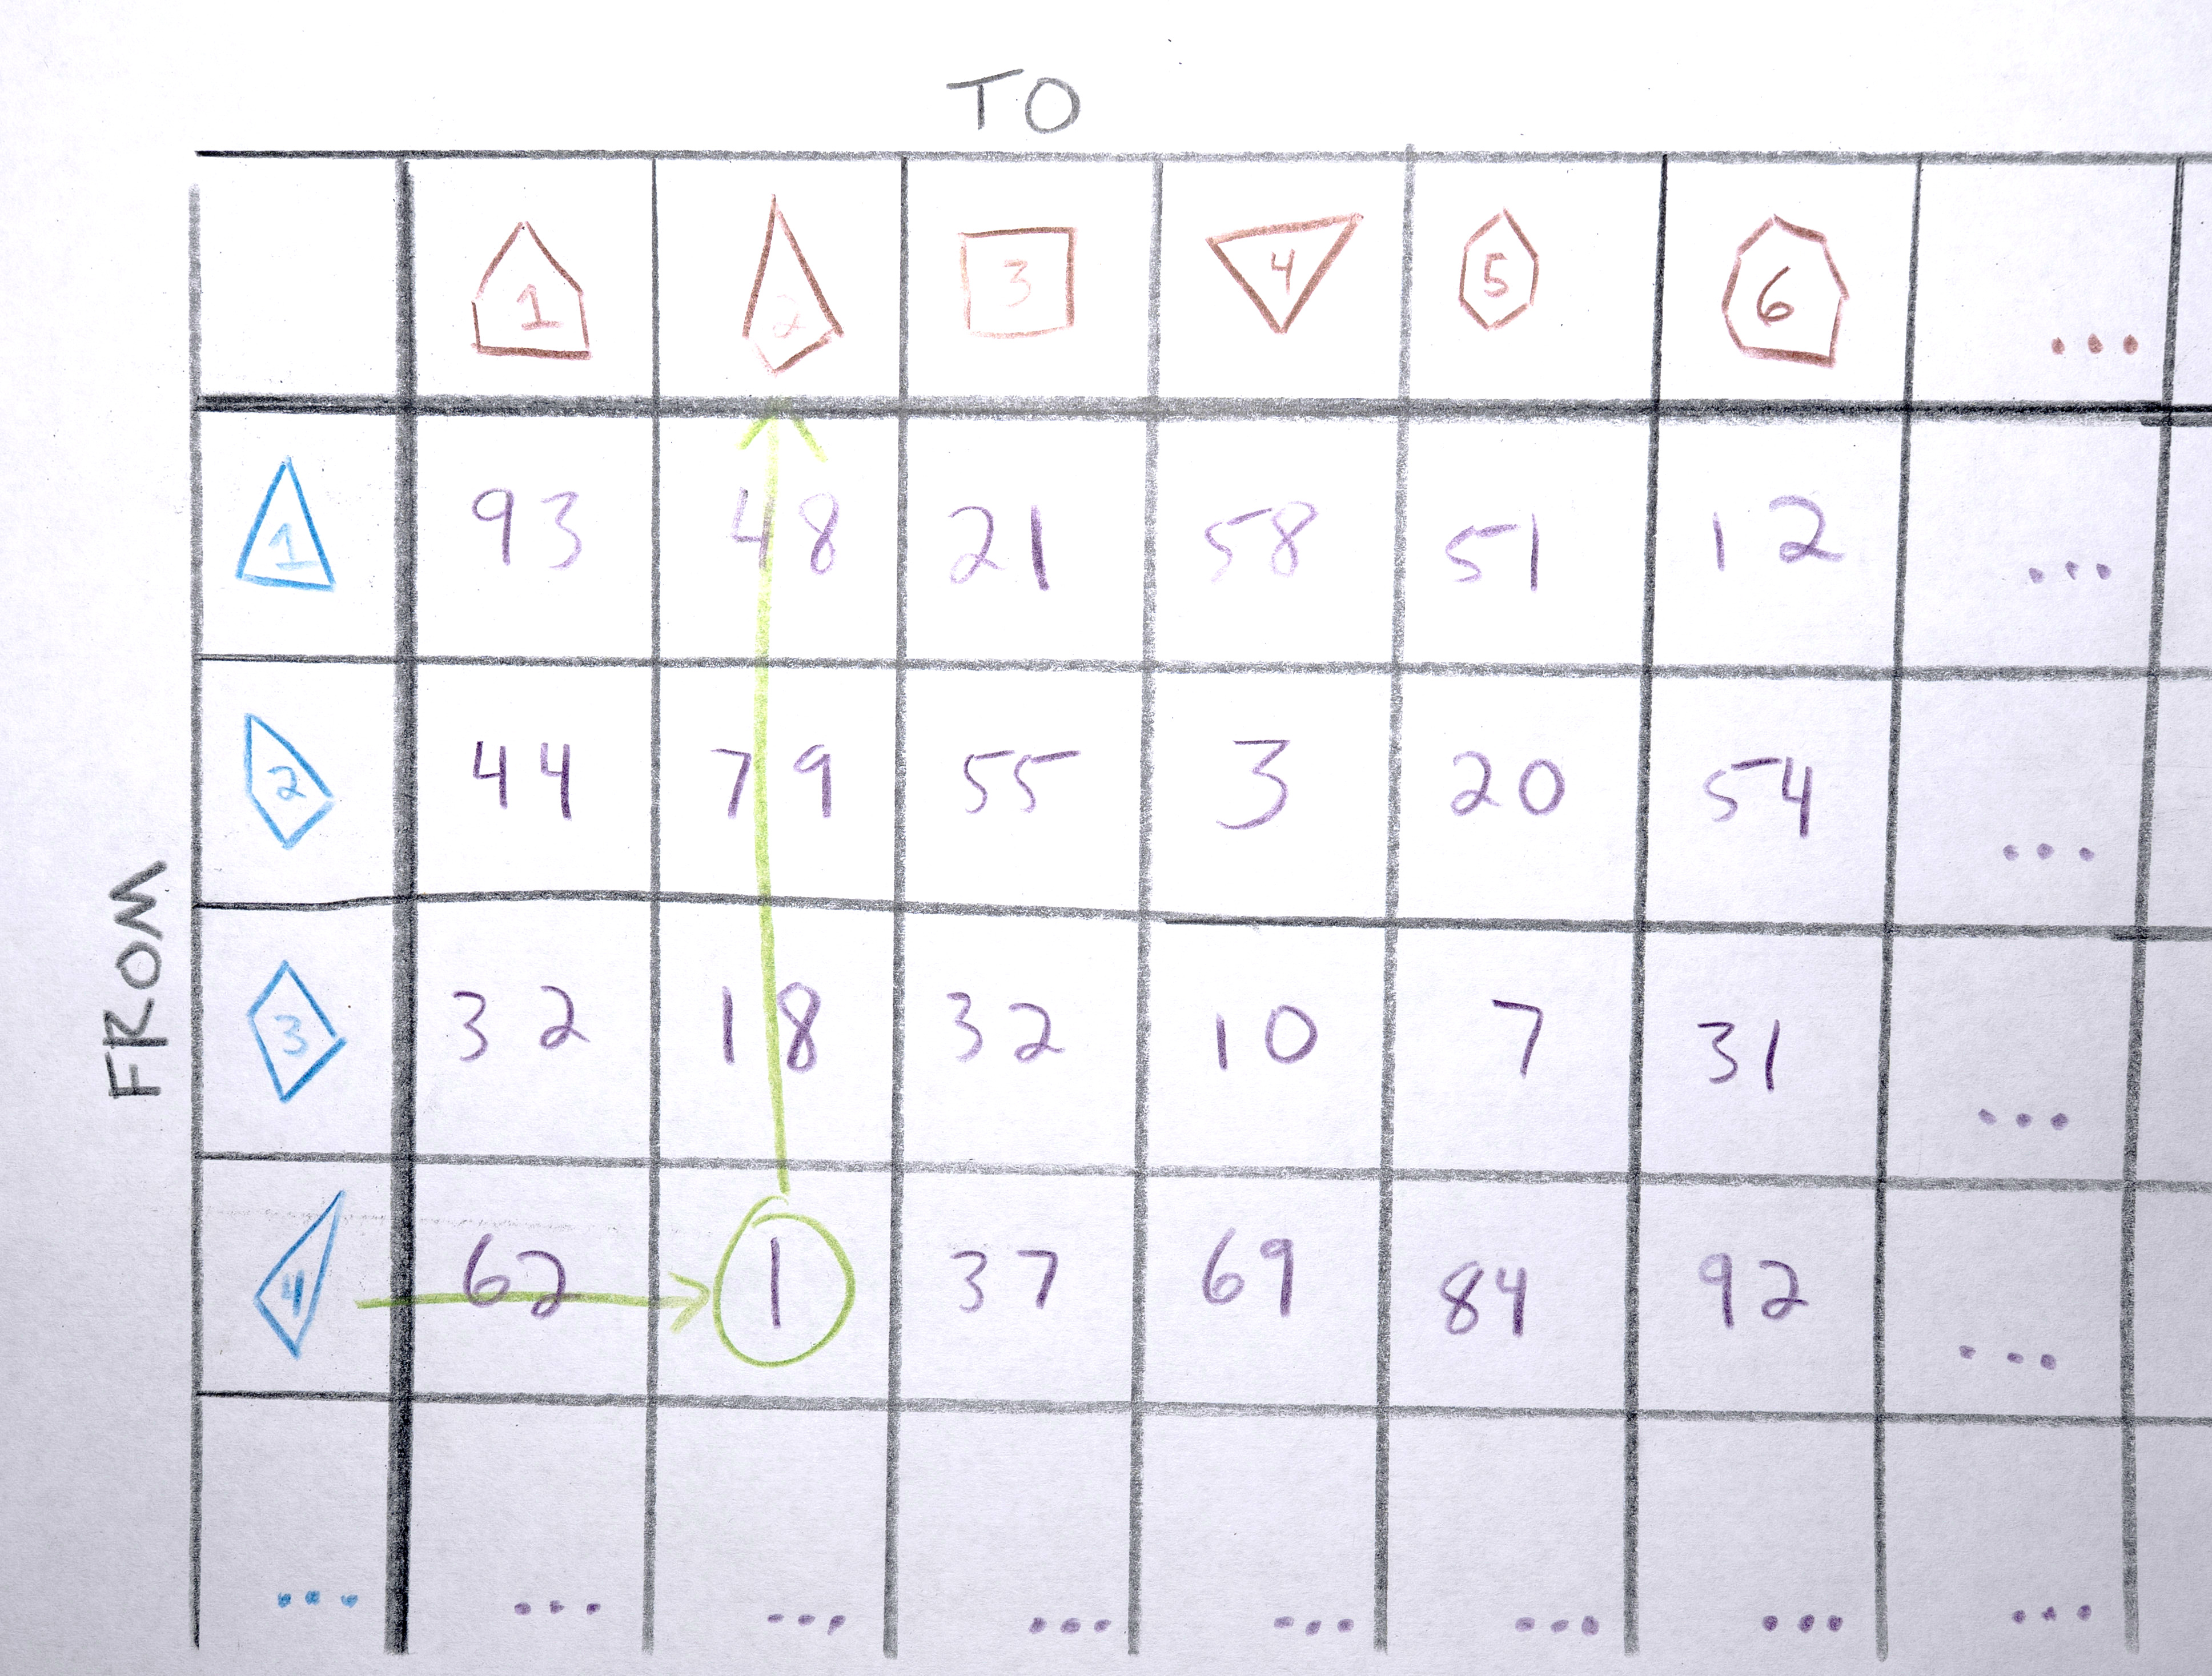 TO
1 2 3 4 5 6 ...
1 93 48 21 58 51 12 ...
2 44 79 55 3 20 54 ...
FROM
3 32 18 32 10 7 31 ...
4 62 1 37 69 84 92 ...
... ... ... ... ... ... ... ...